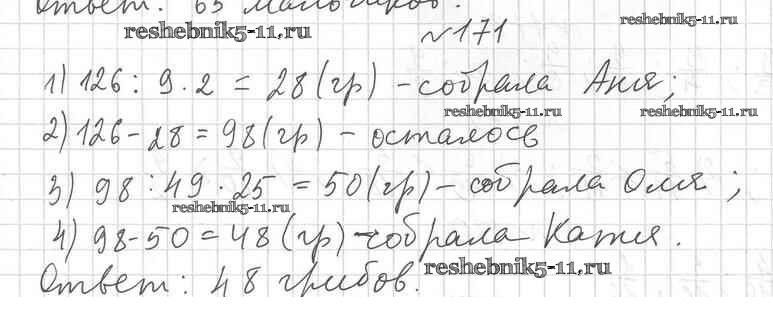 Ответ: 63 мальчиков.
reshebnik5-11.ru
reshebnik5-11.ru
№171
1) 126 : 9 · 2 = 28 (гр) - собрала Аня;
reshebnik5-11.ru
reshebnik5-11.ru
2) 126 - 28 = 98 (гр) - осталось
3) 98 : 49 · 25 = 50 (гр) - собрала Оля;
reshebnik5-11.ru
4) 98 - 50 = 48 (гр) - собрала Катя.
Ответ: 48 грибов.
reshebnik5-11.ru